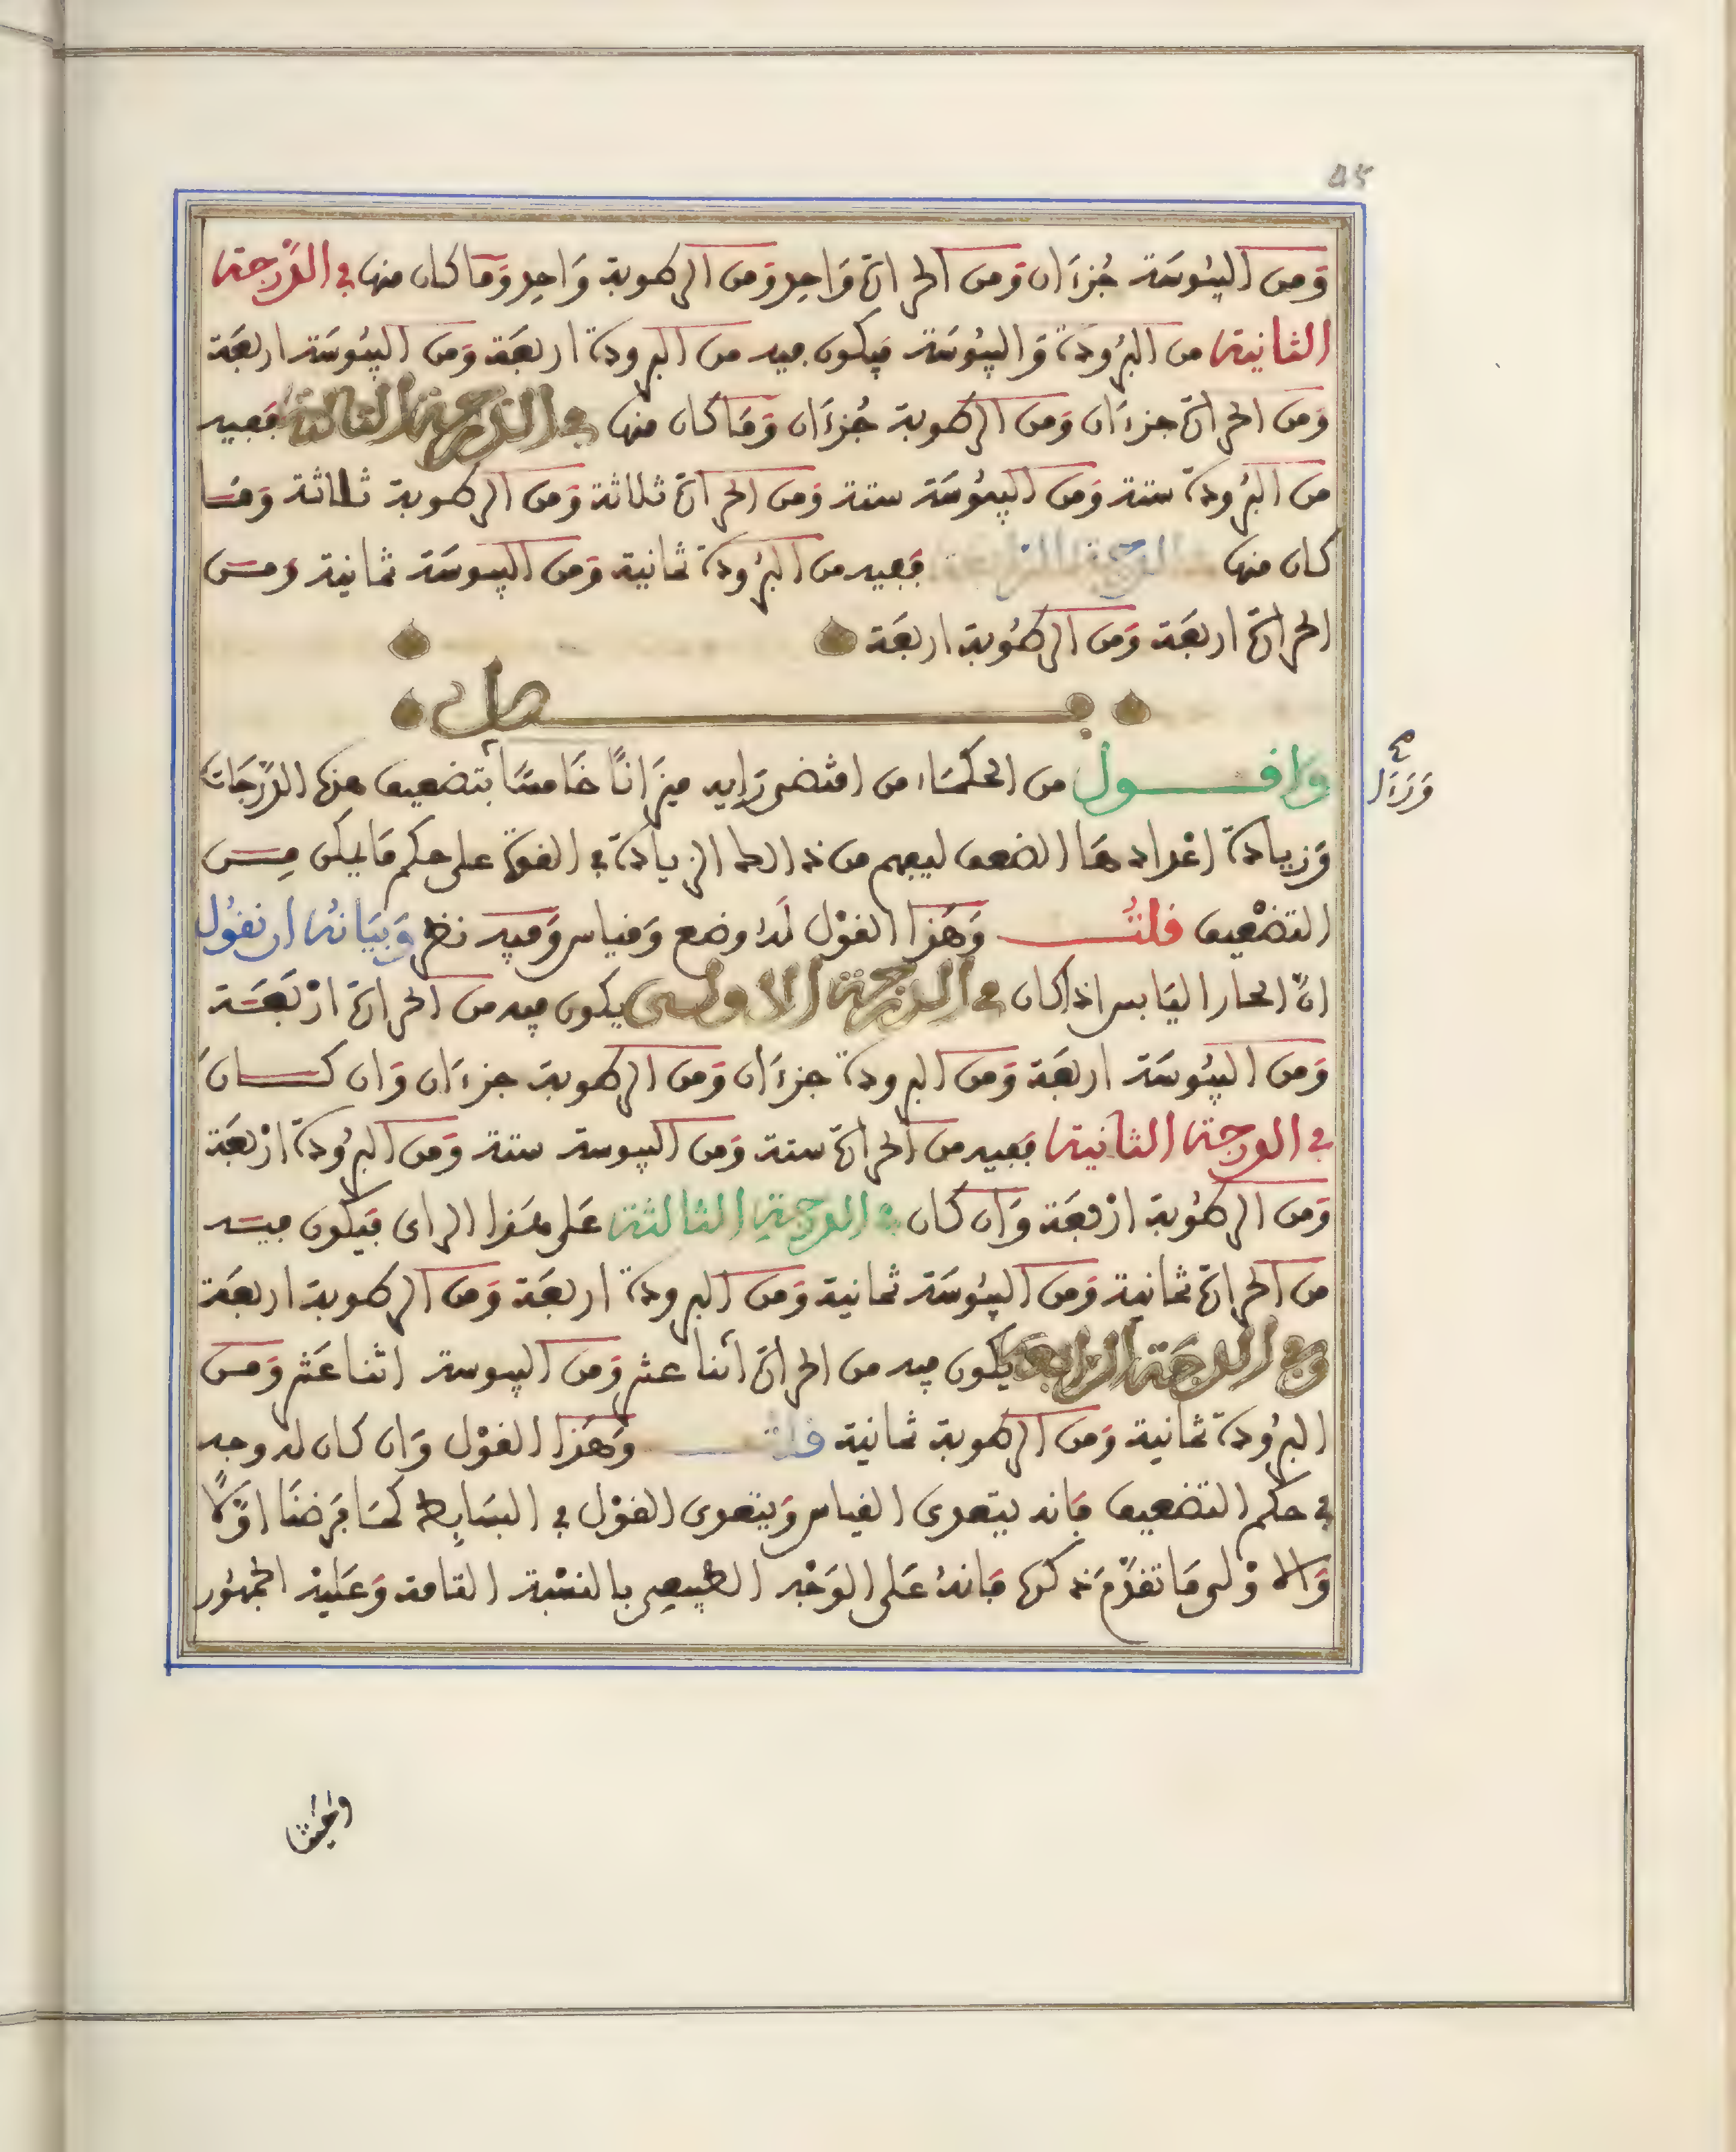 45
وَمن اليبُوسَة جُزءَان وَمن الحرارة وَاحد وَمن الرطوبة وَاحد وَمَا كان منها في الدَّرجة
الثانية من البرُودة وَاليبُوسَة فيكون فيه من البرودة اربعَة وَمن اليبُوسَة اربعَة
وَمن الحرارة جزءَان وَمن الرطوبة جُزءَان وَمَا كان منها في الدرجة الثالثة فَفيه
من البرُودة ستة وَمن اليبُوسَة ستة وَمن الحرارة ثلاثة وَمن الرطوبة ثلاثة وَمَا
كان منها في الدرجة الرابعة فَفيه من البرُودة ثمانية وَمن اليبوسَة ثمانية ومن
الحرارة اربعَة وَمن الرطُوبة اربعَة
فصل
واقول من الحكمَاء من اقتضى رايه ميزَانًا خَامسًا بتضعيف هذه الدَّرجَات
وَرءَال
وَزيادة اعْدادهَا الضعف ليفهم من ذالك الزيادة في القوة على حكم مَا يمكن مِن
التضْعيف قلتُ وَهَذا القوْل لَهُ وضع وَقياس وَفيه نظر وَبيَانهُ ان نقُول
انَّ الحار اليَابس اذا كان في الدرجة الاولى يكون فيه من الحرارة ارْبَعَة
وَمن اليبُوسَة اربعَة وَمن البرودة جزءَان وَمن الرطوبة جزءَان وَان كَان
في الدرجة الثانية فَفيه من الحرارة ستة وَمن اليبوسة ستة وَمن البرُودة ارْبعَة
وَمن الرطُوبة ارْبعَة وَان كان في الدرجة الثالثة عَلى هَذا الراى فيَكون فيه
من الحرارة ثمانية وَمن اليبُوسَة ثمانية وَمن البرودة اربعَة وَمن الرطوبة اربعَة
وفي الدرجَة الرابعة يكون فيه من الحرارة اثنا عشر وَمن اليبوسة اثنا عَشر وَمن
البرُودة ثمانية وَمن الرطوبة ثمانية قلت وَهَذا القوْل وَان كان له وجه
في حكم التضعيف فانه يتعدى القياس وَيتعدى القوْل في البسَايط كمَا فرَضنَا اوَّلًا
وَالاوْلى مَا تقدَّم ذكرها فَانهُ عَلى الوَجْه الطبيعي بالنسْبة التامة وَعَليْه الجمهُور